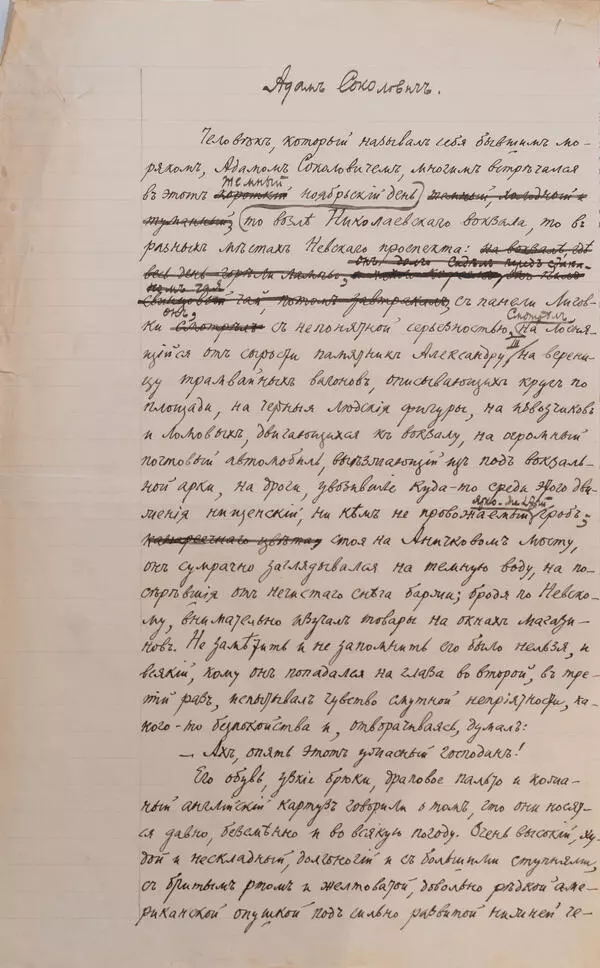 1
Адамъ Соколовичъ.
Человѣкъ, который называлъ себя бывшимъ мо-
рякомъ, Адамомъ Соколовичемъ, многимъ встрѣчался
темный
въ этотъ короткій ноябрьскій день, темный, холодный и
туманный, то возлѣ Николаевскаго вокзала, то въ
разныхъ мѣстахъ Невскаго проспекта: на вокзалѣ, гдѣ
онъ долго сидѣлъ
весь день горѣли лампы,
свинцовый чай, потомъ завтракалъ, съ панели Лигов-
ки смотрѣлъ съ непонятной серьезностью
Смотрѣлъ
на лосня-
щійся отъ сырости памятникъ Александру III, на верени-
цу трамвайныхъ вагоновъ, описывающихъ кругъ по
площади, на черныя людскія фигуры, на извозчиковъ
и ломовыхъ, двигающихся къ вокзалу, на огромный
почтовый автомобиль, выѣзжающій изъ подъ вокзаль-
ной арки, на дроги, увозившіе куда-то среди этого дви-
женія нищенскій, ни кѣмъ не провожаемый
гробъ;
канареечнаго цвѣта, стоя на Аничковомъ мосту,
онъ сумрачно заглядывался на темную воду, на по-
сѣрѣвшія отъ нечистаго снѣга баржи; бродя по Невско-
му, внимательно изучалъ товары на окнахъ магази-
новъ. Не замѣтить и не запомнить его было нельзя, и
всякій, кому онъ попадался на глаза во второй, въ тре-
тій разъ, испытывалъ чувство смутной непріятности, ка-
кого-то безпокойства и, отворачиваясь, думалъ:
— Ахъ, опять этотъ ужасный господинъ!
Его обувь, узкіе брюки, драповое пальто и кожа-
ный англійскій картузъ говорили о томъ, что они носят-
ся давно, безсмѣнно и во всякую погоду. Очень высокій, ху-
дой и нескладный, долгоногій и съ большими ступнями,
съ бритымъ ртомъ и желтоватой, довольно рѣдкой аме-
риканской опушкой подъ сильно развитой нижней че-